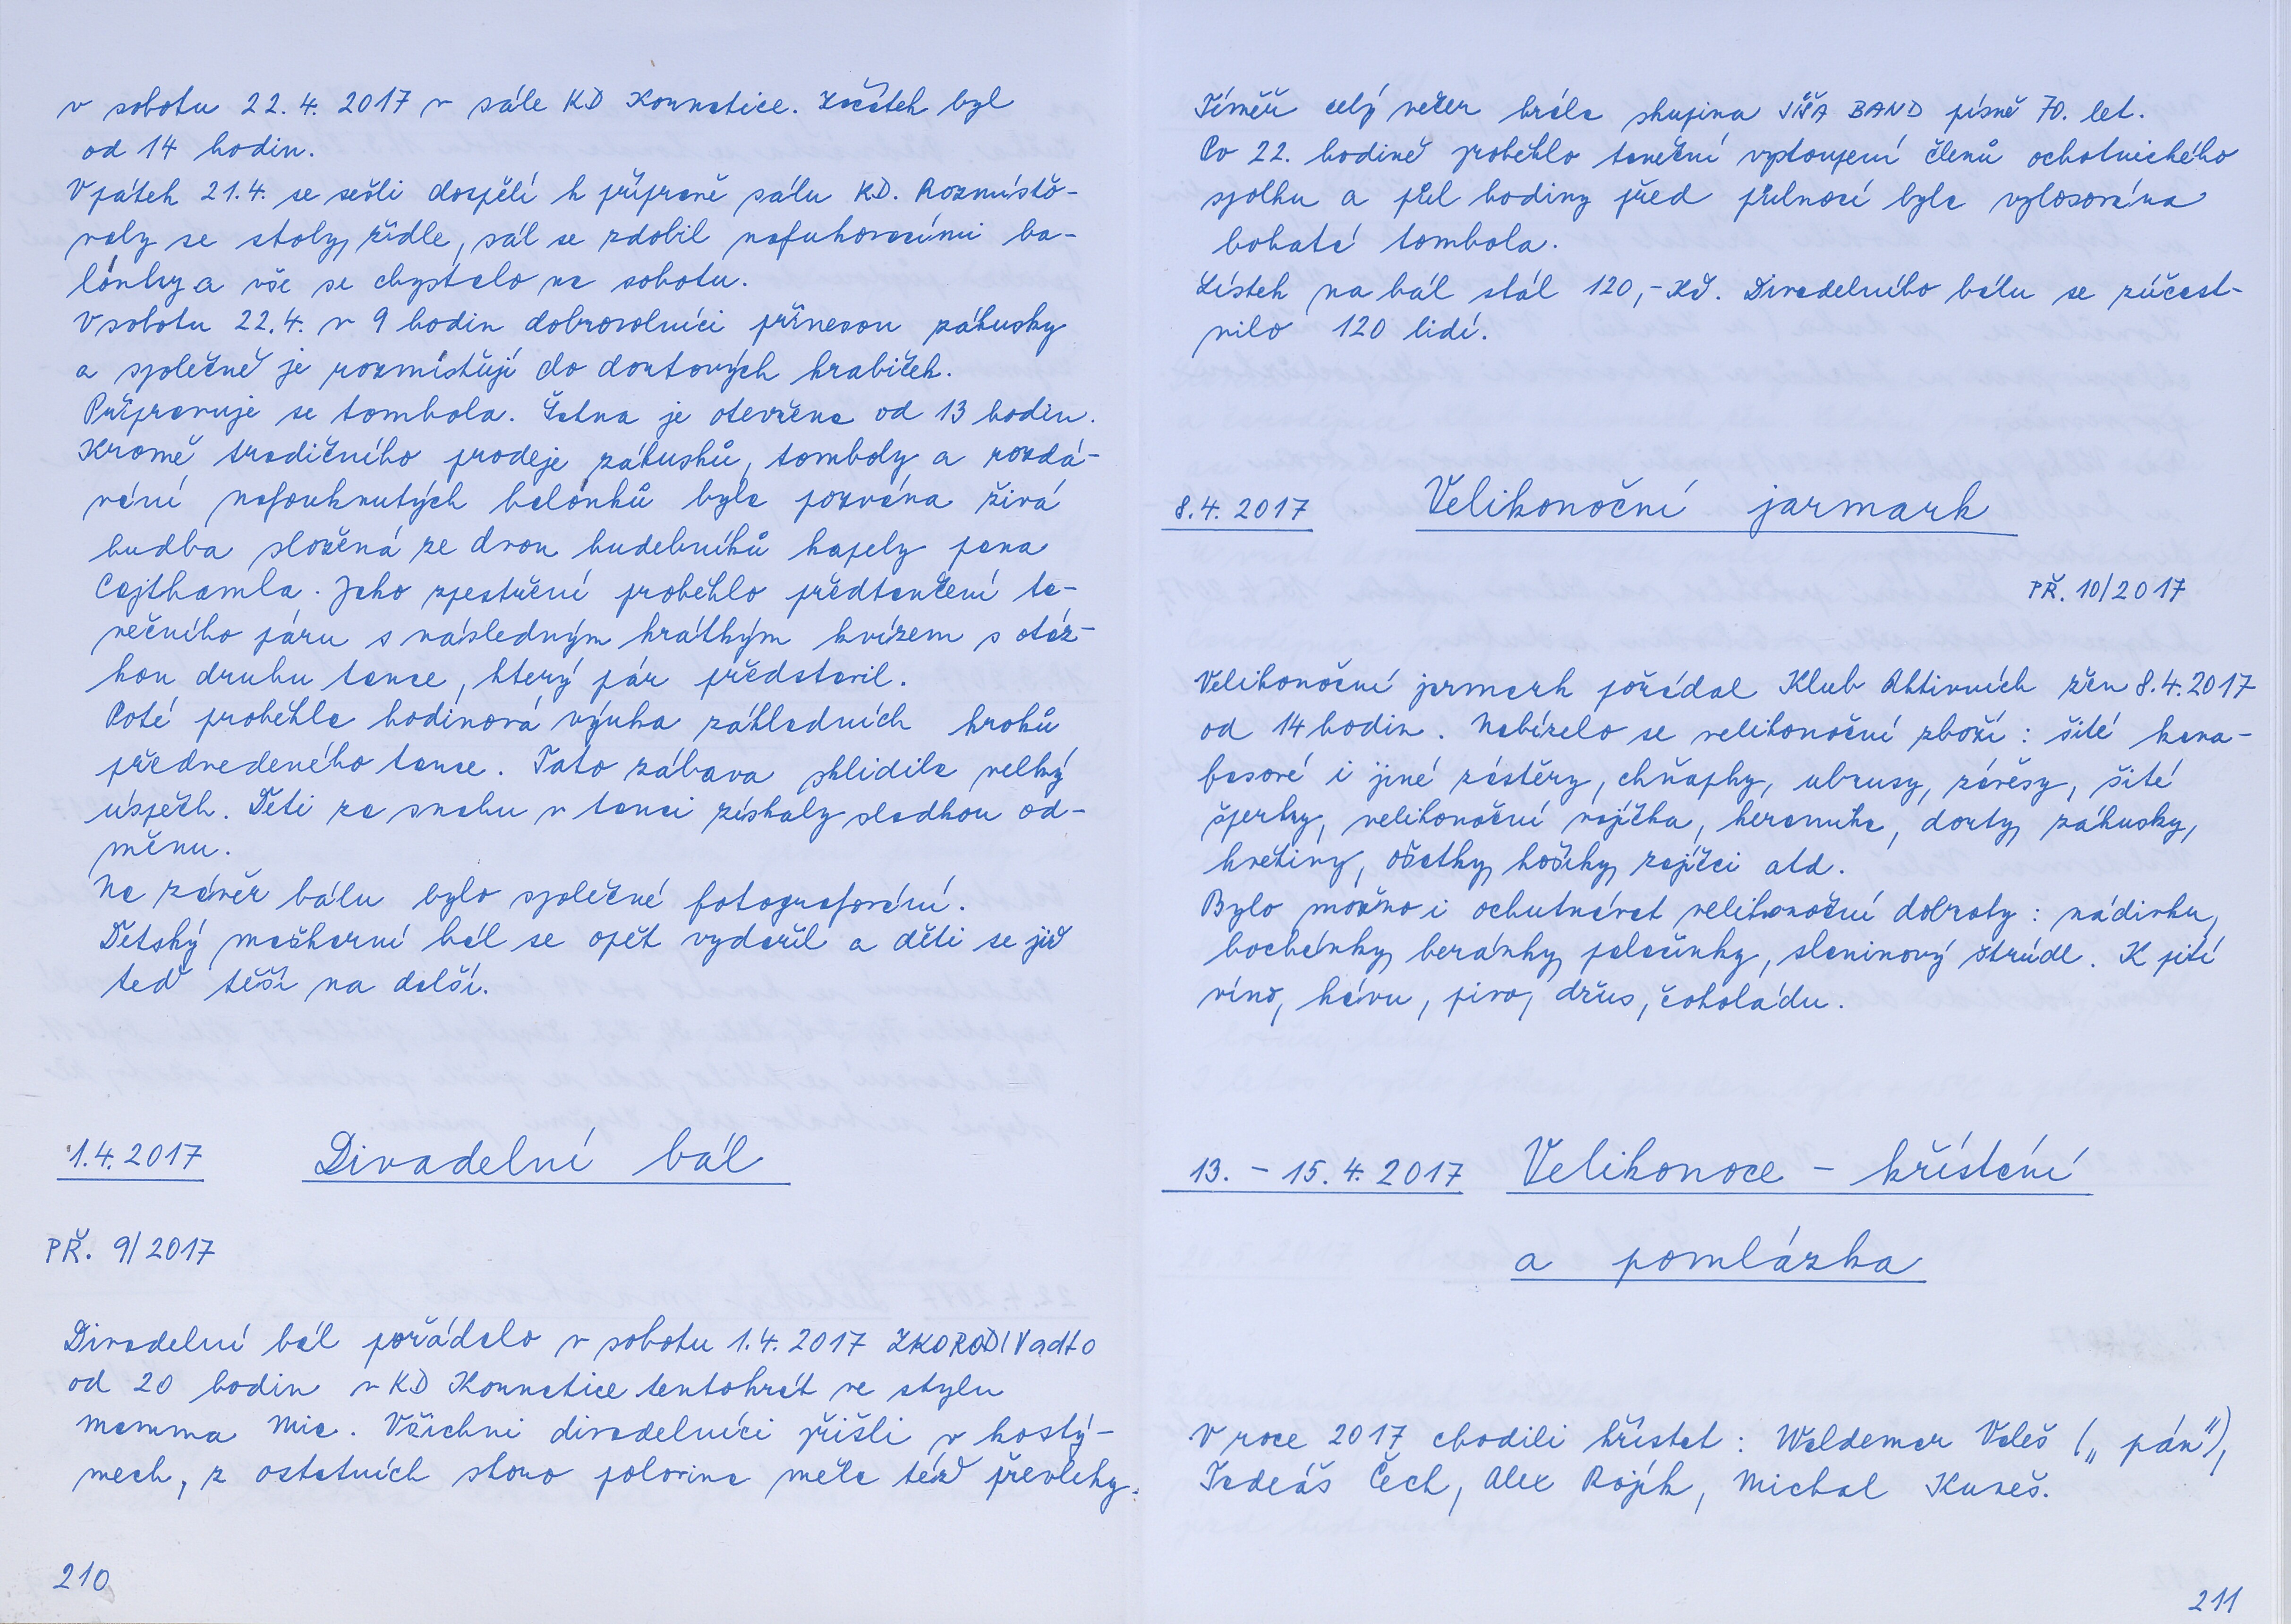 v sobotu 22. 4. 2017 v sále KD Kornatice. Začátek byl
od 14 hodin.
V pátek 21.4. se sešli dospělí k přípravě sálu KD. Rozmístě-
valy se stoly, židle, sál se zdobil nafukovacími ba-
lónky a vše se chystalo na sobotu.
V sobotu 22.4. v 9 hodin dobrovolníci přinesou zákusky
a společně je rozmístěují do dortových krabiček.
Připravuje se tombola. Šatna je otevřena od 13 hodin.
Kromě tradičního prodeje zákusků, tomboly a rozdá-
vání nafouknutých balónků byla pozvána živá
hudba složená ze dvou hudebníků kapely pana
Cajthamla. Jako zpestření proběhlo předtančení ta-
nečního páru s následným krátkým kvízem s otáz-
kou druhu tance, který pár představil.
Poté proběhla hodinová výuka základních kroků
předvedeného tance. Tato zábava sklidila velký
úspěch. Děti za snahu v tanci získaly sladkou od-
měnu.
Na závěr bálu bylo společné fotografování.
Dětský maškarní bál se opět vydařil a děti se již
teď těší na další.
1.4. 2017 Divadelní bál
PŘ. 9/2017
Divadelní bál pořádalo v sobotu 1.4. 2017 ZKORODIVadlo
od 20 hodin v KD Kornatice tentokrát ve stylu
Mamma Mia. Všichni divadelníci přišli v kostý-
mech, z ostatních skoro polovina měla též převleky.
210
Téměř celý večer hrála skupina JÍŠA BAND písně 70. let.
Po 22. hodině proběhlo taneční vystoupení členů ochotnického
spolku a půl hodiny před půlnocí byla vylosována
bohatá tombola.
Lístek na bál stál 120,- Kč. Divadelního bálu se zúčast-
nilo 120 lidí.
8.4. 2017 Velikonoční jarmark
PŘ. 10/2017
Velikonoční jarmark pořádal Klub Aktivních žen 8.4.2017
od 14 hodin. Nabízelo se velikonoční zboží: šité kana-
fasové i jiné zástěry, chňapky, ubrusy, závěsy, šité
šperky, velikonoční vajíčka, keramika, dorty, zákusky,
květiny, ošatky, košíky, zajíčci atd.
Bylo možno i ochutnávat velikonoční dobroty: nádivku,
bochánky, beránky, palačinky, slaninový štrúdl. K pití
víno, kávu, pivo, džus, čokoládu.
13. - 15. 4. 2017 Velikonoce - křístání
a pomlázka
V roce 2017 chodili křístat: Waldemar Valeš („ pán"),
Tadeáš Čech, Alex Roják, Michal Kuneš.
211